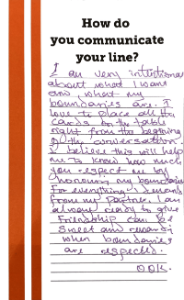 How do
you communicate
your line?
I am very intentional
about what I want
and what my
boundaries are. I
love to place all the
cards on the table
right from the beginning
of the conversation.
I believe this will help
me to know how much
you respect me by
honoring my boundaries
for everything I demand
from my partner I am
always ready to give
Friendship can be
sweet and
when boundaries
are respected.